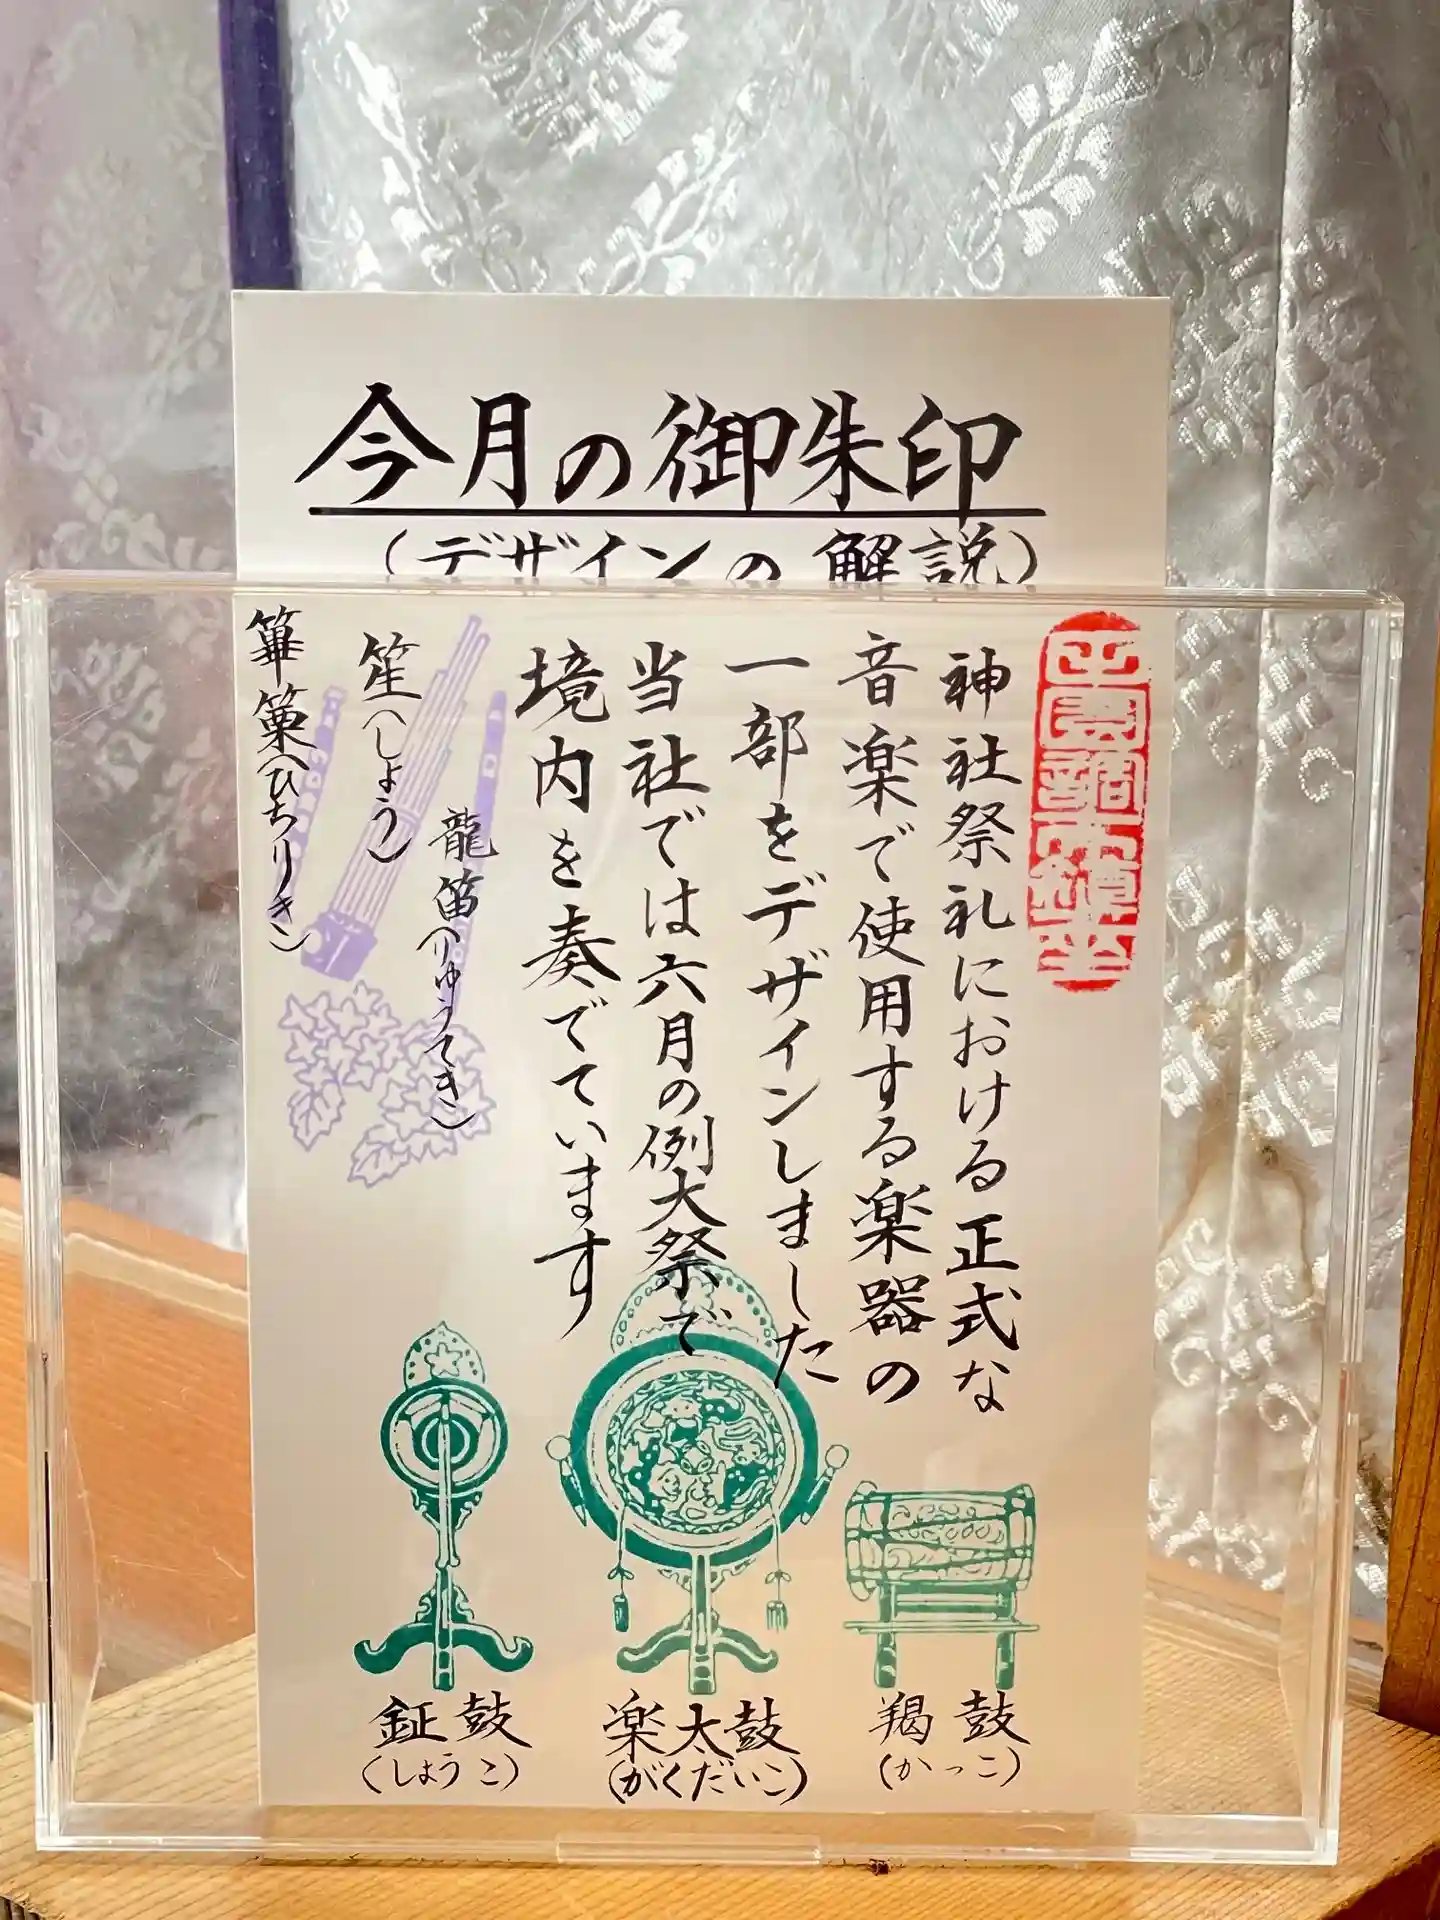 今月の御朱印
(デザインの解説)
神社祭礼における正式な
音楽で使用する楽器の
一部をデザインしました
当社では六月の例大祭で
境内を奏でています
龍笛(りゅうてき)
笙(しょう)
篳篥(ひちりき)
羯鼓
(かっこ)
楽太鼓
(がくだいこ)
鉦鼓
(しょうこ)